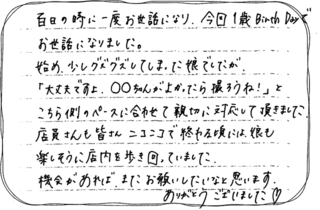 百日の時に一度お世話になり、今回1歳Birth Dayで
お世話になりました。
始め、少しグズグズしてしまった娘でしたが
「大丈夫ですよ、〇〇ちゃんがよかったら撮ろうね!」と
こちら側のペースに合わせて親切に対応して頂きました。
店員さんも皆さんニコニコで終わる頃には、娘も
楽しそうに店内を歩き回っていました。
機会があればまたお願いしたいなと思います。
ありがとうございました♡